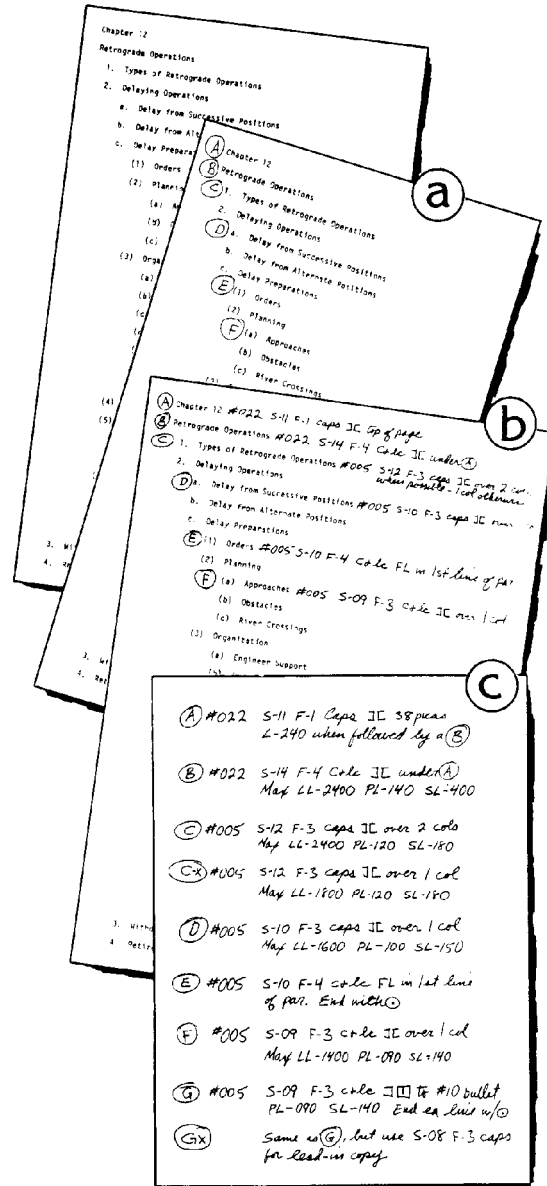 Chapter 12
Retrograde Operations
1. Types of Retrograde Operations
2. Delaying Operations
a. Delay from Successive Positions
b. Delay from Alt
c. Delay Prepara
(1) Orders
(2) Plannin
(a) A
(b)
(c)
(3) Orga
(a)
(b)
(c)
(4)
(5)
3. Wit
4. Re
a
A Chapter 12
B Retrograde Operations
C 1. Types of Retrograde Operations
2. Delaying Operations
D a. Delay from Successive Positions
b. Delay from Alternate Positions
c. Delay Preparations
E (1) Orders
(2) Planning
F (a) Approaches
(b) Obstacles
(c) River Crossings
3. Wi
4. Ret
b
A Chapter 12 #022 S-11 F-1 caps ][ top of page
B Retrograde Operations #022 S-14 F-4 C+lc ][ under A
C 1. Types of Retrograde Operations #005 S-12 F-3 caps ][ over 2 cols
when possible - 1 col otherwise
2. Delaying Operations
D a. Delay from Successive Positions #005 S-10 F-3 caps ][ over
b. Delay from Alternate Positions
c. Delay Preparations
E (1) Orders #005 S-10 F-4 C+lc FL in 1st line of par
(2) Planning
F (a) Approaches #005 S-09 F-3 C+lc ][ over 1 col
(b) Obstacles
(c) River Crossings
(3) Organization
(a) Engineer Support
3. Witho
4. Retir
c
A #022 S-11 F-1 Caps ][ 38 picas
L-240 when followed by a B
B #022 S-14 F-4 C+lc ][ under A
Max LL-2400 PL-140 SL-400
C #005 S-12 F-3 caps ][ over 2 cols
Max LL-2400 PL-120 SL-180
C-x #005 S-12 F-3 caps ][ over 1 col
Max LL-1800 PL-120 SL-180
D #005 S-10 F-3 caps ][ over 1 col
Max LL-1600 PL-100 SL-150
E #005 S-10 F-4 c+lc FL in 1st line
of par. End with ⊙
F #005 S-09 F-3 c+lc ][ over 1 col
Max LL-1400 PL-090 SL-140
G #005 S-09 F-3 c+lc #10 bullet
PL-090 SL-140 End ea line w/⊙
Gx Same as G, but use S-08 F-3 caps
for lead-in copy